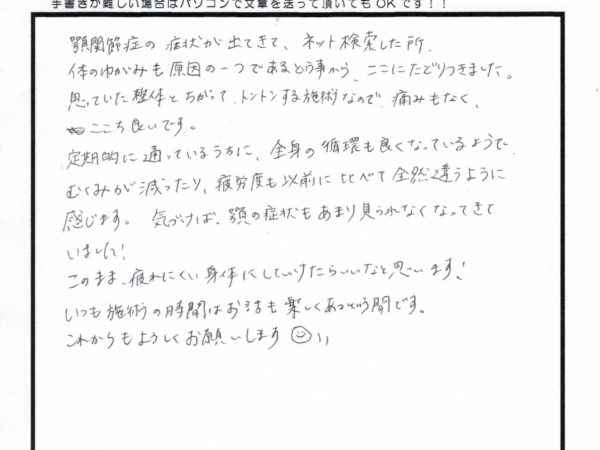 手書きが難しい場合はパソコンで文章を送って頂いてもOKです！！
顎関節症の症状が出てきて、ネット検索した所、
体のゆがみも原因の一つであるという事から、ここにたどりつきました。
思っていた整体とちがって、トントンする施術なので、痛みもなく、
ここち良いです。
定期的に通っているうちに、全身の循環も良くなっているようで
むくみが減ったり、疲労度も以前に比べて全然違うように
感じます。 気づけば、顎の症状もあまり見られなくなってきて
いました！
このまま、疲れにくい身体にしていけたらいいなと思います！
いつも施術の時間はお話も楽しくあっという間です。
これからもよろしくお願いします